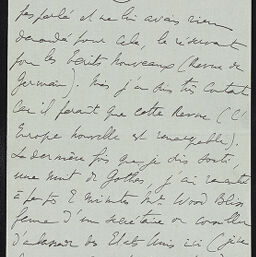 pas parlé et ne lui avais rien
demandé pour cela, le réservant
pour les écrits nouveaux (Revue de
Germain). Mais j'en suis très content
car il parait que cette Revue (l'
Europe nouvelle est remarquable).
La dernière fois que je suis sorti,
une nuit de Gothas, j'ai rencontré
à peu 2 minutes Mrs Wood Bliss
femme d'un secrétaire ou conseiller
d'ambassade des Etats Unis ici (je